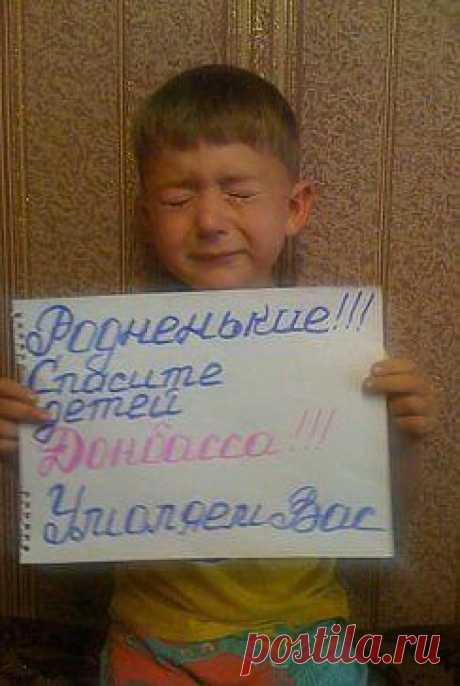 Родненькие!!!
Спасите
детей
Донбасса!!!
Умоляем Вас
postila.ru